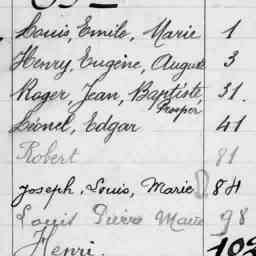 Louis, Emile, Marie 1
Henry, Eugène, August 3
Roger, Jean, Baptiste, 31.
Prosper
Léonel, Edgar 41
Robert 81
Joseph, Louis, Marie 84
Louis Pierre Marie 98
Henri. 102